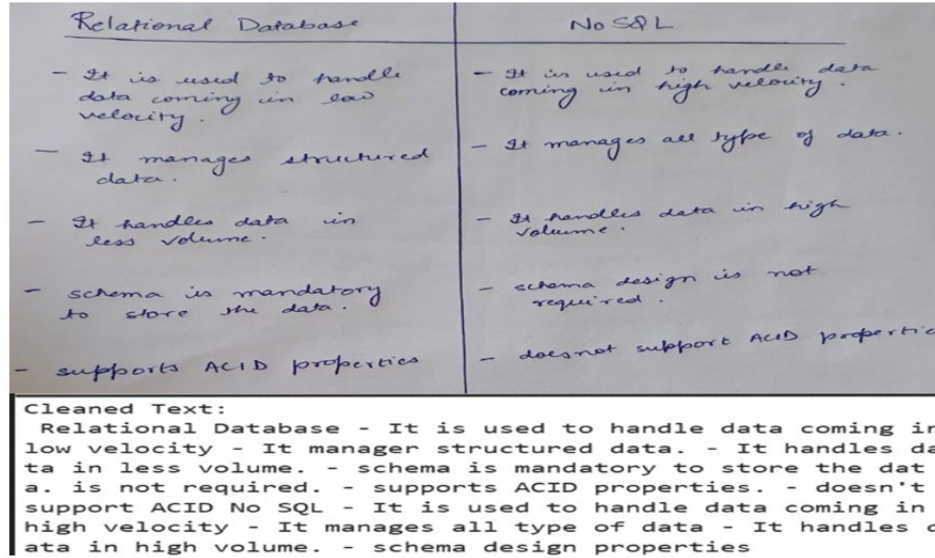 Relational Database
- It is used to handle
data coming in low
velocity.
- It manages structured
data.
- It handles data in
less volume.
- schema is mandatory
to store the data.
- supports ACID properties
No SQL
- It is used to handle data
coming in high velocity.
- It manages all type of data.
- It handles data in high
volume.
- schema design is not
required.
- doesnot support ACID propertie
Cleaned Text:
Relational Database - It is used to handle data coming in
low velocity - It manager structured data. - It handles da
ta in less volume. - schema is mandatory to store the dat
a. is not required. - supports ACID properties. - doesn't
support ACID No SQL - It is used to handle data coming in
high velocity - It manages all type of data - It handles d
ata in high volume. - schema design properties